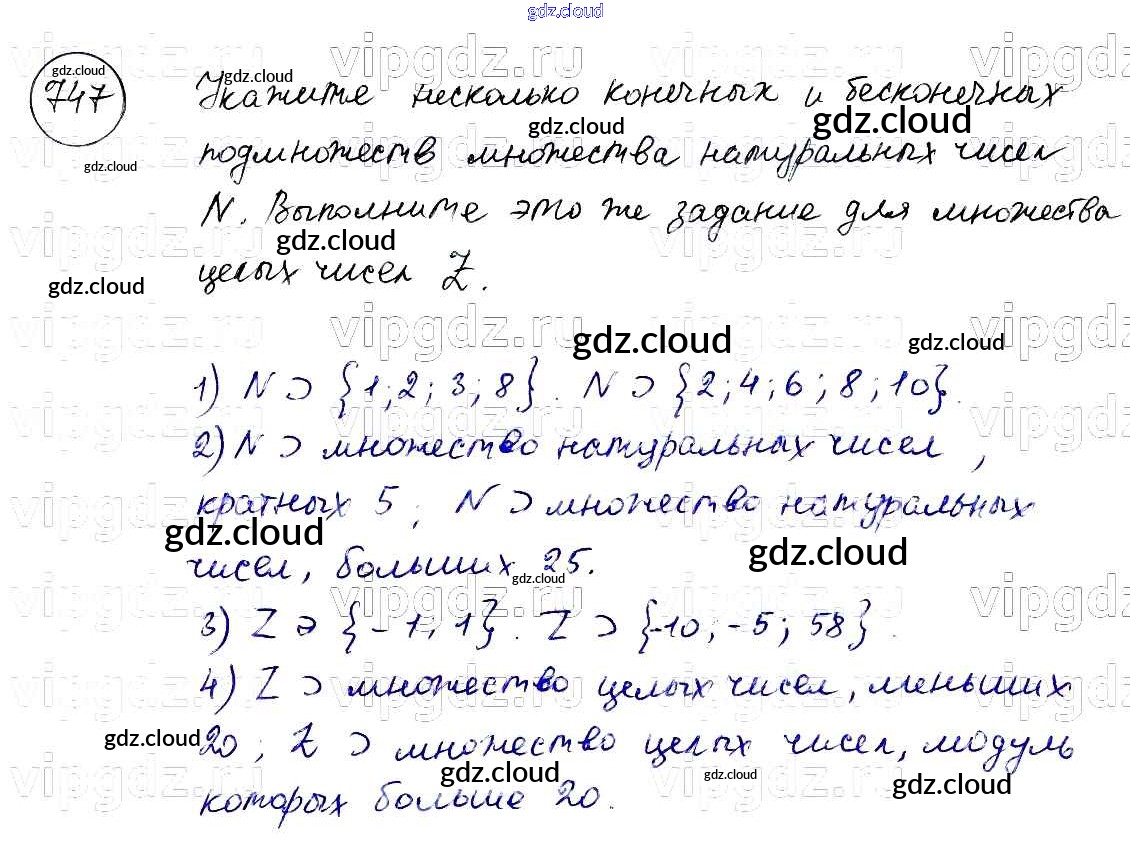 gdz.cloud
747
Укажите несколько конечных и бесконечных
подмножеств множества натуральных чисел
N. Выполните это же задание для множества
целых чисел Z.
1) N ⊃ {1; 2; 3; 8}. N ⊃ {2; 4; 6; 8; 10}.
2) N ⊃ множество натуральных чисел,
кратных 5; N ⊃ множество натуральных
чисел, больших 25.
3) Z ∋ {-1, 1}. Z ⊃ {-10; -5; 58}.
4) Z ⊃ множество целых чисел, меньших
20; Z ⊃ множество целых чисел, модуль
которых больше 20.